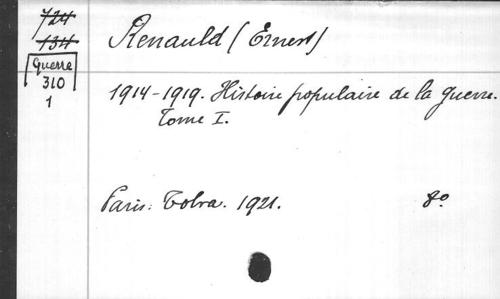 724
134
Guerra
310
1
Renauld (Ernest)
1914-1919. Histoire populaire de la guerre.
Tome I.
Paris: Tolra. 1921. 8º